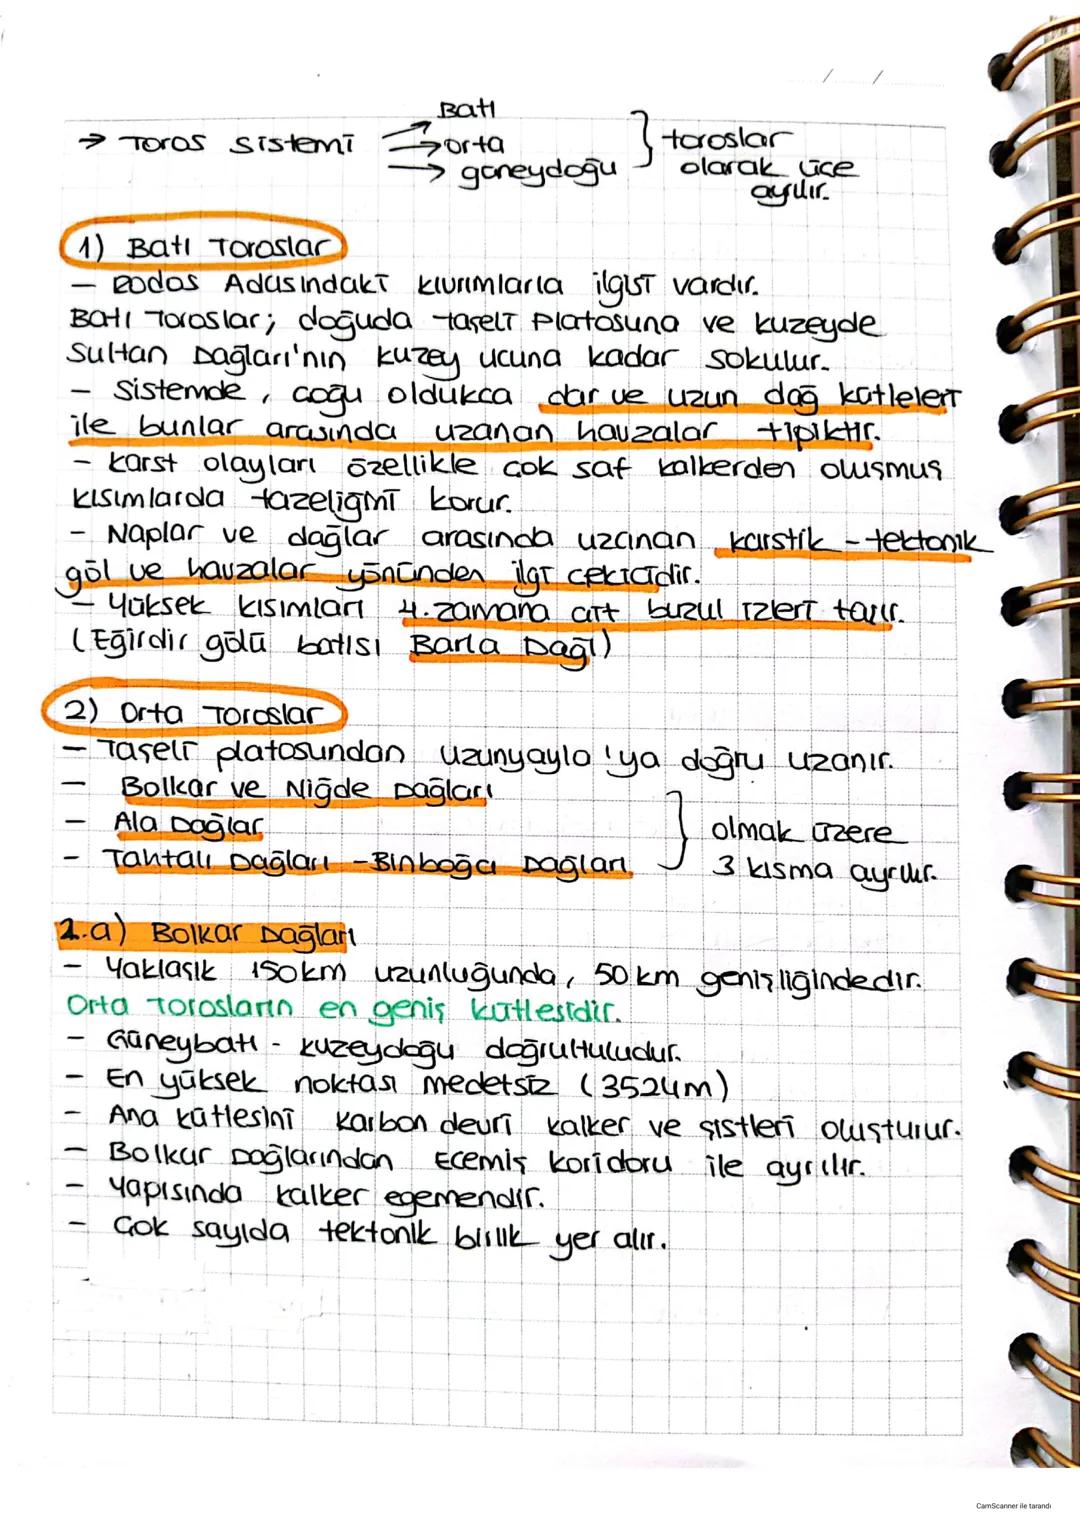 / /
→ Toros sistemi → Batı
→ orta
→ güneydoğu
} toroslar
olarak üçe
ayrılır.
1) Batı Toroslar
- Rodos Adasındaki kıvrımlarla ilgisi vardır.
Batı Toroslar; doğuda taşeli Platosuna ve kuzeyde
Sultan Dağları'nın kuzey ucuna kadar sokulur.
- Sistemde, çoğu oldukça dar ve uzun dağ kütleleri
ile bunlar arasında uzanan havzalar tipiktir.
- Karst olayları özellikle çok saf kalkerden oluşmuş
kısımlarda tazeliğini korur.
- Naplar ve dağlar arasında uzanan karstik - tektonik
göl ve havzalar yönünden ilgi çekicidir.
- Yüksek kısımları 4. zamana ait buzul izleri taşır.
(Eğirdir gölü batısı Barla Dağı)
2) Orta Toroslar
- Taşeli platosundan Uzunyayla'ya doğru uzanır.
- Bolkar ve Niğde Dağları
- Ala Dağlar
- Tahtalı Dağları - Binboğa Dağları
} olmak üzere
3 kısma ayrılır.
2.a) Bolkar Dağları
- Yaklaşık 150km uzunluğunda, 50km genişliğindedir.
Orta Torosların en geniş kütlesidir.
- Güneybatı - kuzeydoğu doğrultuludur.
- En yüksek noktası medetsiz (3524m)
- Ana kütlesini karbon devri kalker ve şistleri oluşturur.
- Bolkar Dağlarından Ecemiş koridoru ile ayrılır.
- Yapısında kalker egemendir.
- Çok sayıda tektonik birlik yer alır.
CamScanner ile tarandı